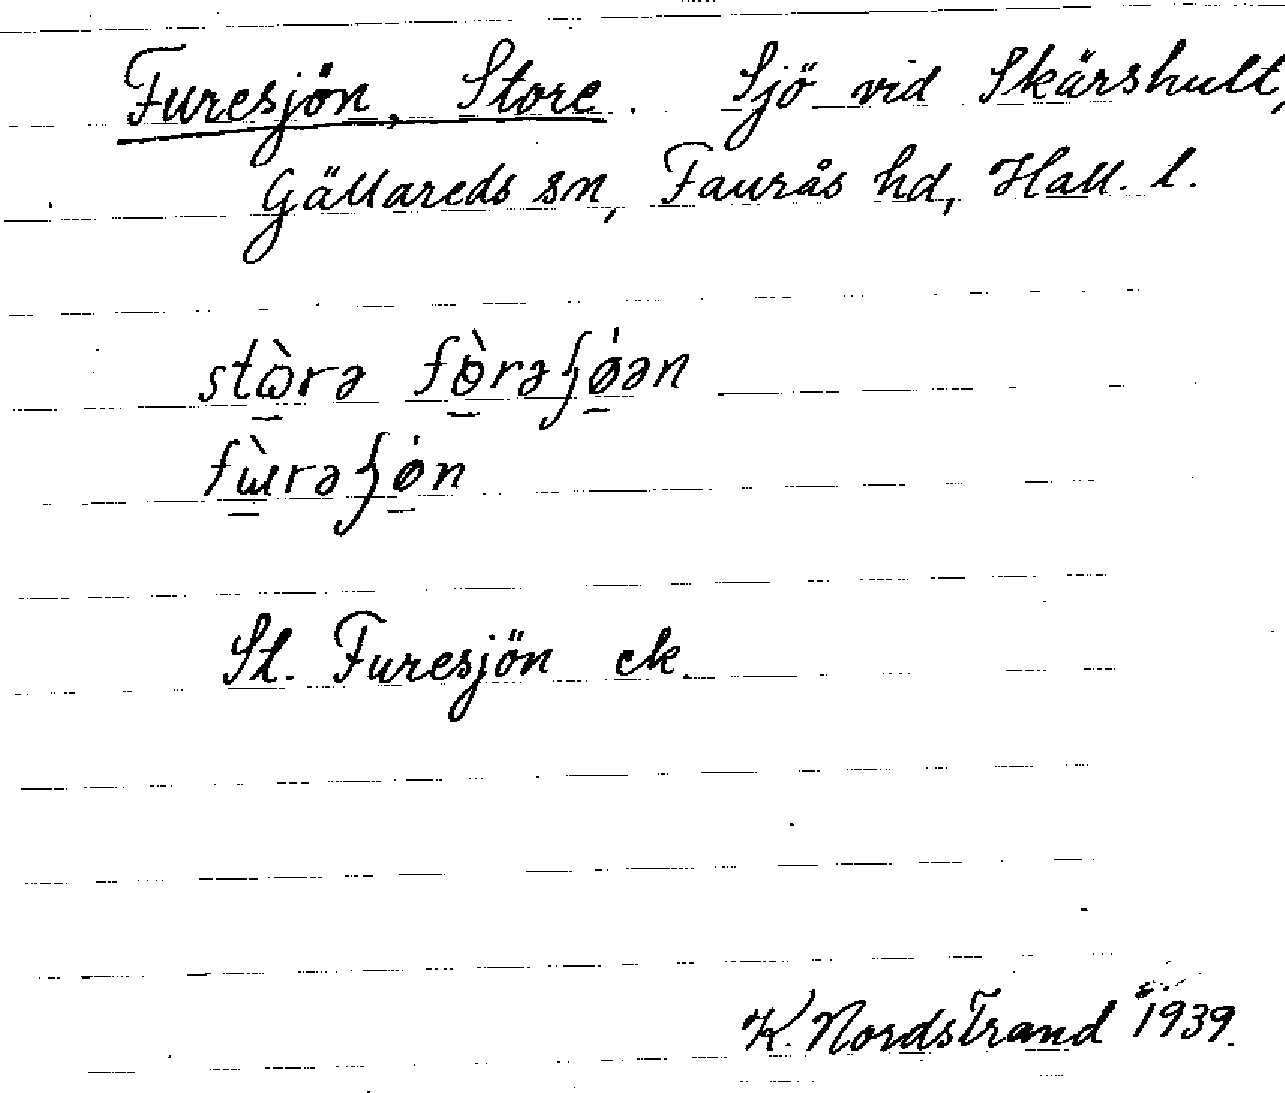 Furesjön, Store. Sjö vid Skärshult,
Gällareds sn, Faurås hd, Hall. l.
stὼrə fɵ̀rəʃǿən
fɯ̀rəʃǿn
St. Furesjön ek.
K. Nordstrand 1939.